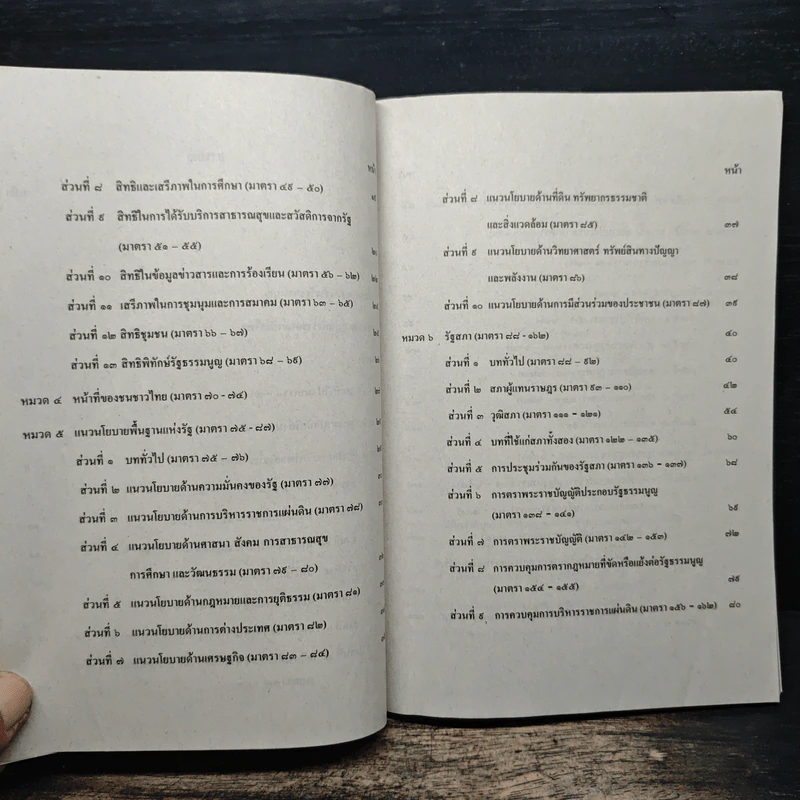 หน้า
ส่วนที่ ๘ สิทธิและเสรีภาพในการศึกษา (มาตรา ๔๙ – ๕๐)
ส่วนที่ ๙ สิทธิในการได้รับบริการสาธารณสุขและสวัสดิการจากรัฐ
(มาตรา ๕๑ – ๕๕)
ส่วนที่ ๑๐ สิทธิในข้อมูลข่าวสารและการร้องเรียน (มาตรา ๕๖ – ๖๒)
ส่วนที่ ๑๑ เสรีภาพในการชุมนุมและการสมาคม (มาตรา ๖๓ – ๖๕)
ส่วนที่ ๑๒ สิทธิชุมชน (มาตรา ๖๖ – ๖๗)
ส่วนที่ ๑๓ สิทธิพิทักษ์รัฐธรรมนูญ (มาตรา ๖๘ – ๖๙)
หมวด ๔ หน้าที่ของชนชาวไทย (มาตรา ๗๐ - ๗๔)
หมวด ๕ แนวนโยบายพื้นฐานแห่งรัฐ (มาตรา ๗๕ - ๘๗)
ส่วนที่ ๑ บททั่วไป (มาตรา ๗๕ – ๗๖)
ส่วนที่ ๒ แนวนโยบายด้านความมั่นคงของรัฐ (มาตรา ๗๗)
ส่วนที่ ๓ แนวนโยบายด้านการบริหารราชการแผ่นดิน (มาตรา ๗๘)
ส่วนที่ ๔ แนวนโยบายด้านศาสนา สังคม การสาธารณสุข
การศึกษา และวัฒนธรรม (มาตรา ๗๙ – ๘๐)
ส่วนที่ ๕ แนวนโยบายด้านกฎหมายและการยุติธรรม (มาตรา ๘๑)
ส่วนที่ ๖ แนวนโยบายด้านการต่างประเทศ (มาตรา ๘๒)
ส่วนที่ ๗ แนวนโยบายด้านเศรษฐกิจ (มาตรา ๘๓ – ๘๔)
หน้า
ส่วนที่ ๘ แนวนโยบายด้านที่ดิน ทรัพยากรธรรมชาติ
และสิ่งแวดล้อม (มาตรา ๘๕) ๓๗
ส่วนที่ ๙ แนวนโยบายด้านวิทยาศาสตร์ ทรัพย์สินทางปัญญา
และพลังงาน (มาตรา ๘๖) ๓๘
ส่วนที่ ๑๐ แนวนโยบายด้านการมีส่วนร่วมของประชาชน (มาตรา ๘๗) ๓๙
หมวด ๖ รัฐสภา (มาตรา ๘๘ - ๑๖๒) ๔๐
ส่วนที่ ๑ บททั่วไป (มาตรา ๘๘ – ๙๒) ๔๐
ส่วนที่ ๒ สภาผู้แทนราษฎร (มาตรา ๙๓ – ๑๑๐) ๔๒
ส่วนที่ ๓ วุฒิสภา (มาตรา ๑๑๑ – ๑๒๑) ๕๔
ส่วนที่ ๔ บทที่ใช้แก่สภาทั้งสอง (มาตรา ๑๒๒ – ๑๓๕) ๖๐
ส่วนที่ ๕ การประชุมร่วมกันของรัฐสภา (มาตรา ๑๓๖ – ๑๓๗) ๖๘
ส่วนที่ ๖ การตราพระราชบัญญัติประกอบรัฐธรรมนูญ
(มาตรา ๑๓๘ – ๑๔๑) ๖๙
ส่วนที่ ๗ การตราพระราชบัญญัติ (มาตรา ๑๔๒ – ๑๕๓) ๗๒
ส่วนที่ ๘ การควบคุมการตรากฎหมายที่ขัดหรือแย้งต่อรัฐธรรมนูญ
(มาตรา ๑๕๔ – ๑๕๕) ๗๙
ส่วนที่ ๙ การควบคุมการบริหารราชการแผ่นดิน (มาตรา ๑๕๖ – ๑๖๒) ๘๐